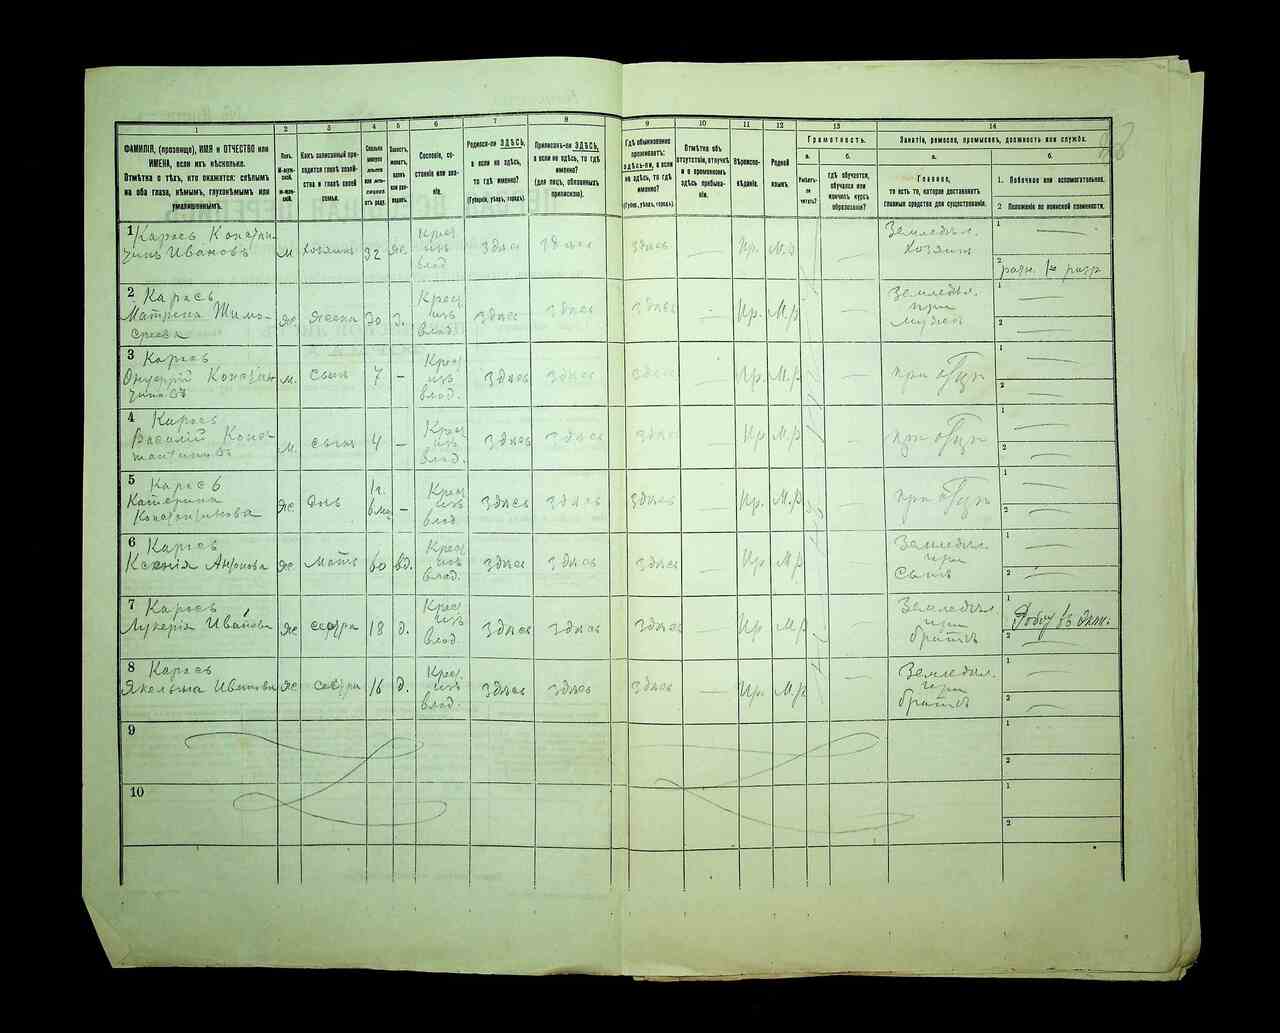 1 2 3 4 5 6 7 8 9 10 11 12 13 14
ФАМИЛІЯ, (прозвище), ИМЯ и ОТЧЕСТВО или
ИМЕНА, если ихъ нѣсколько.
Отмѣтка о тѣхъ, кто окажется: слѣпымъ
на оба глаза, нѣмымъ, глухонѣмымъ или
умалишеннымъ.
Полъ.
М-мужской.
Ж-женской.
Какъ записанный приходится
главѣ хозяйства
и главѣ своей
семьи.
Сословіе, состояніе
или званіе.
Родился-ли ЗДѢСЬ,
а если не здѣсь,
то гдѣ именно?
(Губернія, уѣздъ, городъ).
Приписанъ-ли ЗДѢСЬ,
а если не здѣсь, то гдѣ
именно?
(для лицъ, обязанныхъ
припиской).
Гдѣ обыкновенно
проживаетъ:
здѣсь-ли, а если
не здѣсь, то гдѣ
именно?
(Губ., уѣздъ, городъ).
Отмѣтка объ
отсутствіи, отлучкѣ
и о временномъ
здѣсь пребываніи.
Вѣроисповѣданіе.
Родной
языкъ.
Грамотность.
а. б.
Умѣетъ-ли
читать?
гдѣ обучается,
обучался или
кончилъ курсъ
образованія?
Занятіе, ремесло, промыселъ, должность или служба.
а. б.
Главное,
то есть то, которое доставляетъ
главныя средства для существованія.
1. Побочное или вспомогательное.
2 Положеніе по воинской повинности.
1 Карась Констан-
тинъ Ивановъ м. хозяинъ 32 Крес. изъ влад. здѣсь здѣсь здѣсь — Пр. М.р — Земледѣл. хозяинъ
1 —
2
2 Карась
Матрена Тимо-
феева же жена 30 Крес. изъ влад. здѣсь здѣсь здѣсь — Пр. М.р Земледѣл. при мужѣ
1 —
2 —
3 Карась
Онуфрій Констан
тиновъ м. сынъ 7 — Крес. изъ влад. здѣсь здѣсь здѣсь — Пр. М.р — при отцѣ
1 —
2 —
4 Карась
Василій Конс
тантиновъ м. сынъ 4 — Крес. изъ влад. здѣсь здѣсь здѣсь — Пр М.р — при отцѣ
1 —
2 —
5 Карась
Катерина
Константинова же дочь — Крес. изъ влад. здѣсь здѣсь здѣсь — Пр. М.р — при отцѣ
1 —
2 —
6 Карась
Ксенія Антонова же мать 60 вд. Крес. изъ влад. здѣсь здѣсь здѣсь — Пр М.р — Земледѣл. при сынѣ
1 —
2 —
7 Карась
Лукерія Иванова же сестра 18 д. Крес. изъ влад. здѣсь здѣсь здѣсь — Пр М.р — Земледѣл. при братѣ
1
2 —
8 Карась
Якелына Иванова же сестра 16 д. Крес. изъ влад. здѣсь здѣсь здѣсь — Пр. М.р — Земледѣл. при братѣ
1 —
2 —
9 1
2
10 1
2